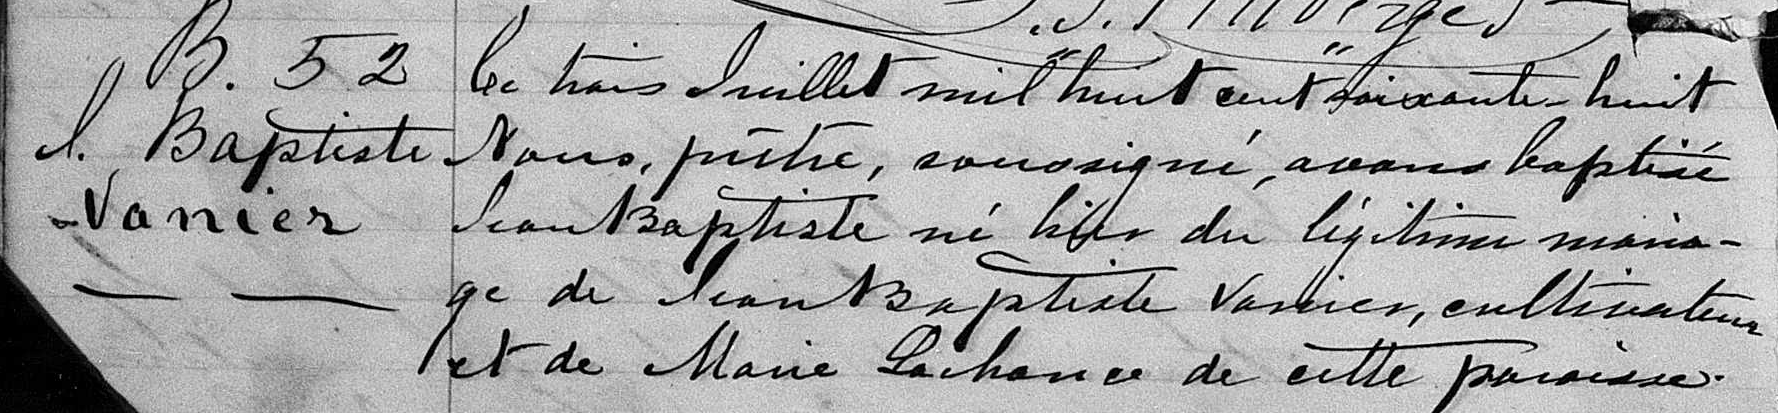 B. 52
J. Baptiste
Vanier
Le trois Juillet mil huit cent soixante-huit
Nous, prêtre, soussigné, avons baptisé
Jean Baptiste né hier du légitime maria-
ge de Jean Baptiste Vanier, cultivateur
et de Marie Lachance de cette paroisse.